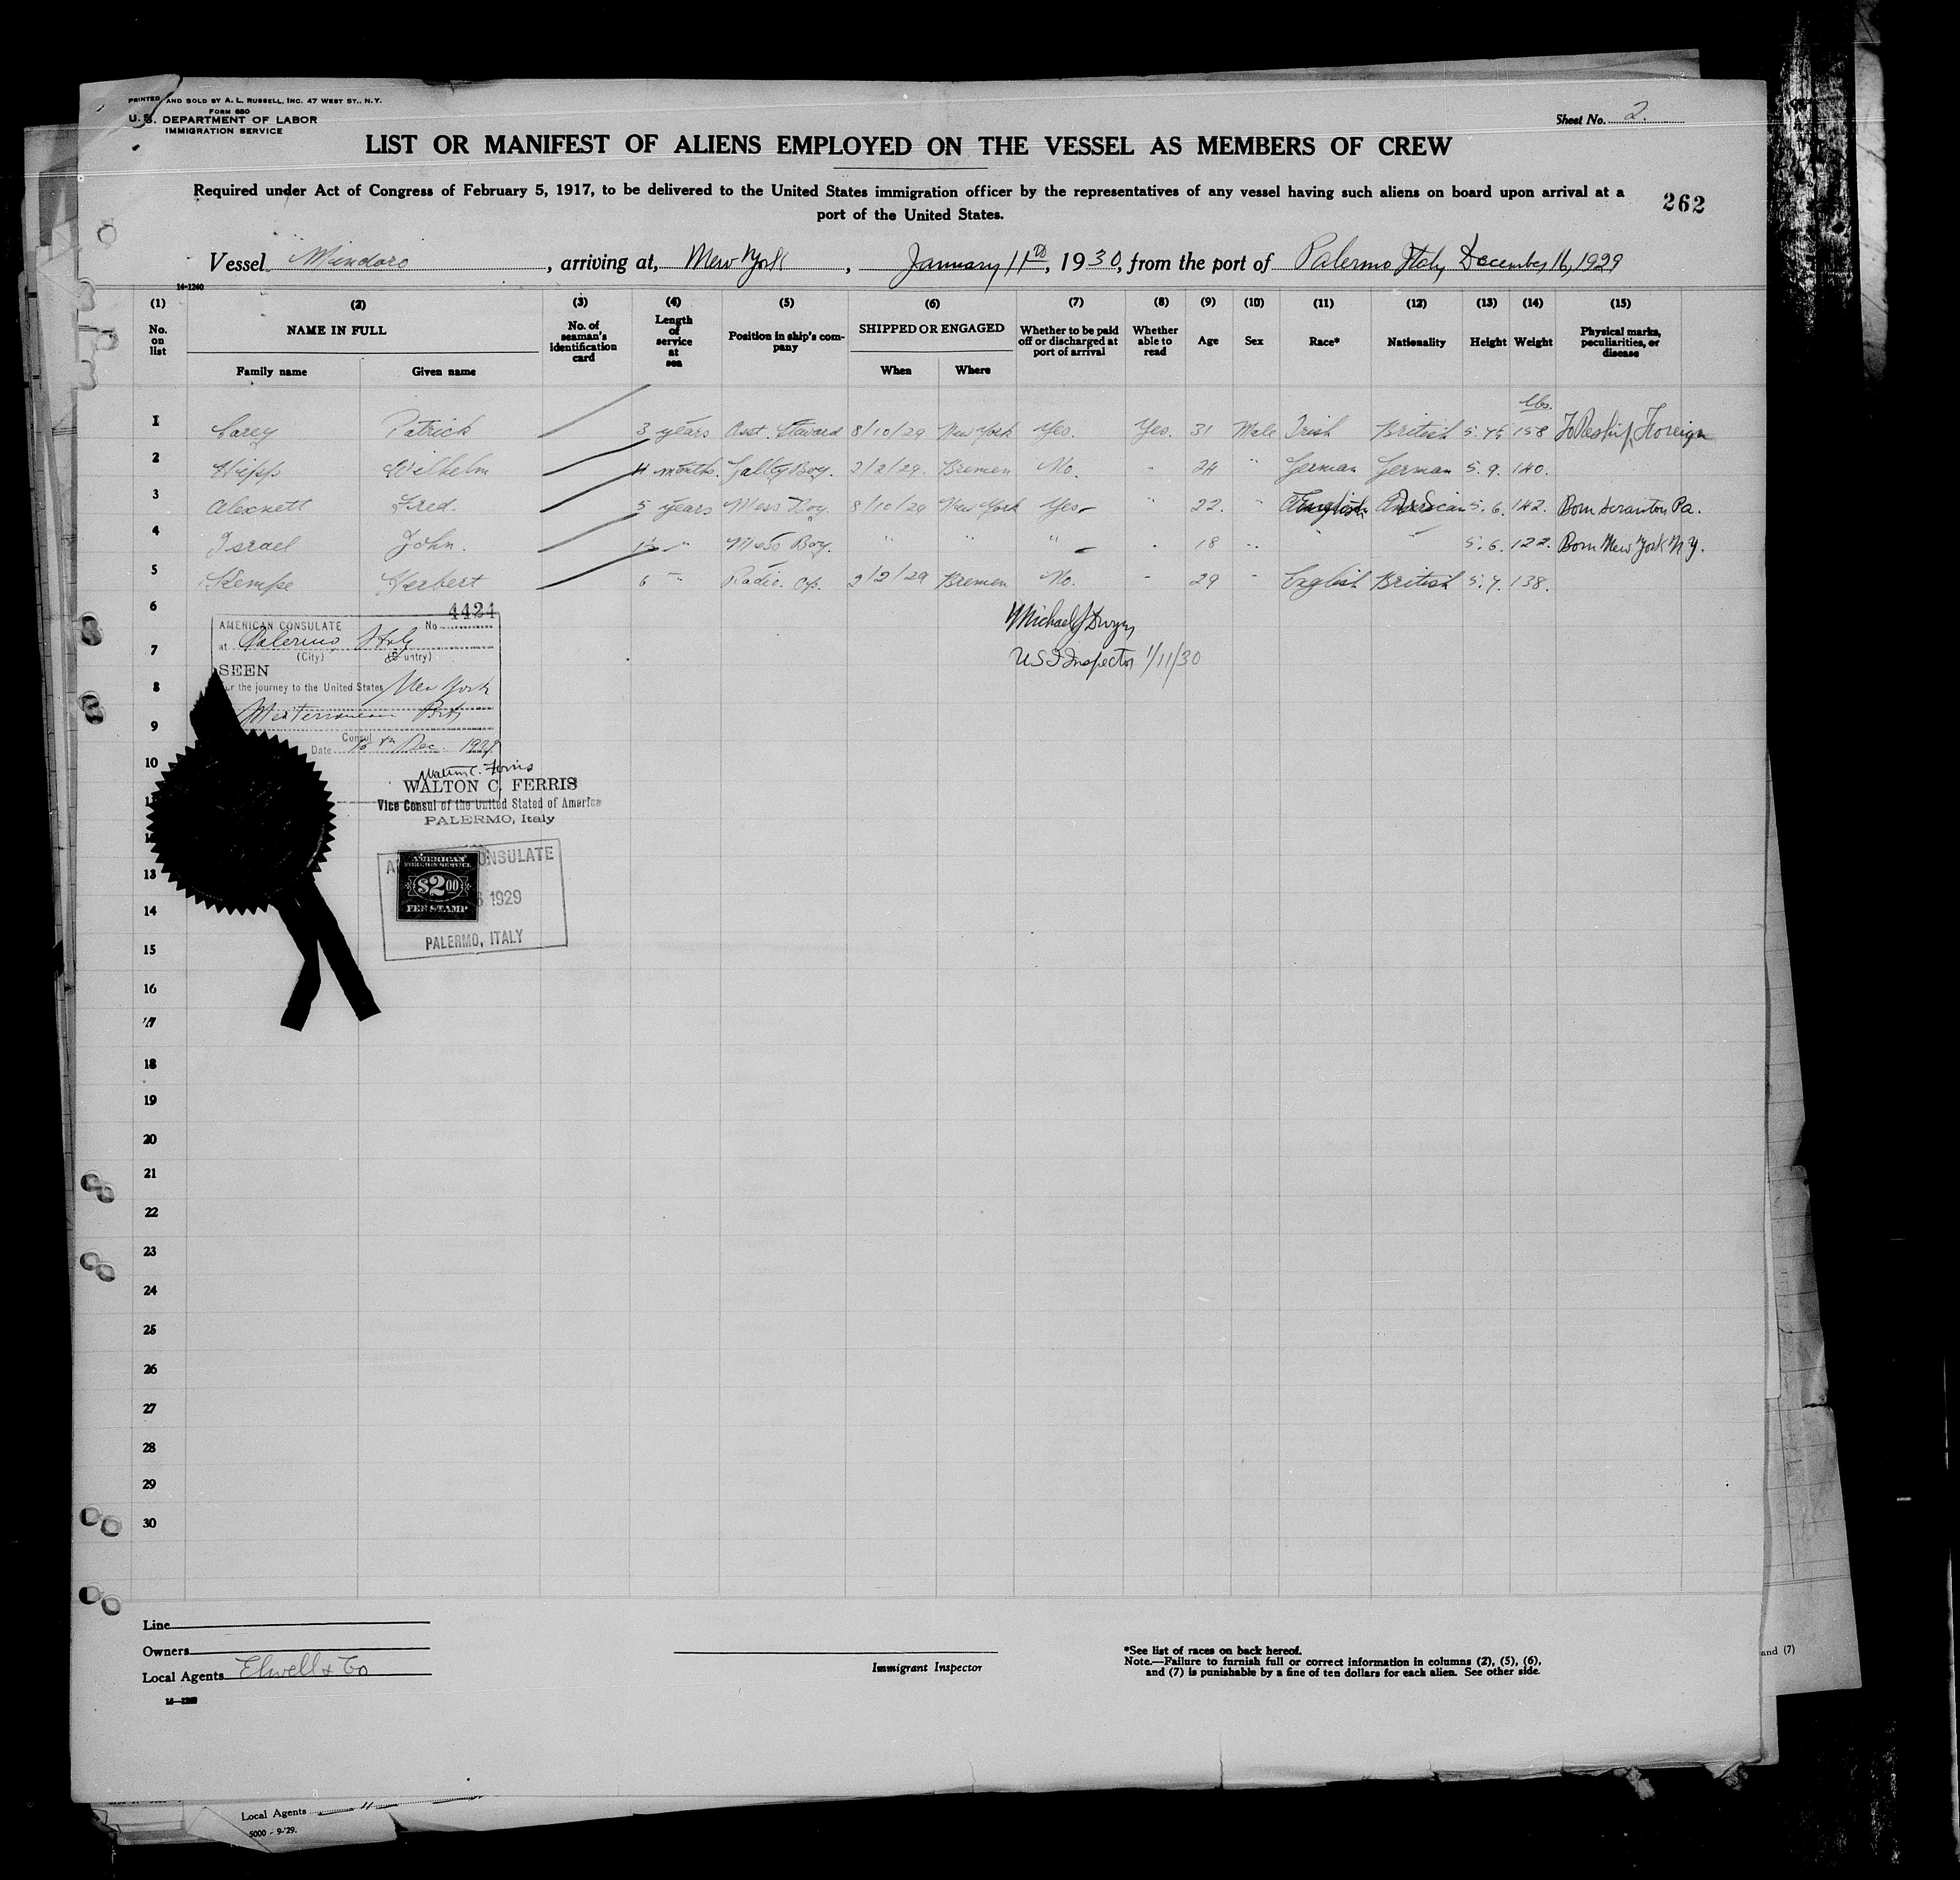 PRINTED AND SOLD BY A. L. RUSSELL, INC. 47 WEST ST., N.Y.
FORM 680
U. S. DEPARTMENT OF LABOR
IMMIGRATION SERVICE
Sheet No. 2.
LIST OR MANIFEST OF ALIENS EMPLOYED ON THE VESSEL AS MEMBERS OF CREW
Required under Act of Congress of February 5, 1917, to be delivered to the United States immigration officer by the representatives of any vessel having such aliens on board upon arrival at a
port of the United States.
262
Vessel Mindoro, arriving at, New York, January 11th, 1930, from the port of Palermo Italy December 16, 1929
14-1240
(1) (2) (3) (4) (5) (6) (7) (8) (9) (10) (11) (12) (13) (14) (15)
No. on list
NAME IN FULL
Family name Given name
No. of seaman's identification card
Length of service at sea
Position in ship's company
SHIPPED OR ENGAGED
When Where
Whether to be paid off or discharged at port of arrival
Whether able to read
Age Sex Race* Nationality Height Weight
Physical marks, peculiarities, or disease
lbs.
1 Carey Patrick 3 years Asst. Steward 8/10/29 New York Yes. Yes. 31 Male Irish British 5. 158 To Reship Foreign
2 Hipps Wilhelm 4 months. Galley Boy. 2/2/29. Bremen No. " 24 " German German 5. 9. 140.
3 Alexnett Fred. 5 years Mess Boy. 8/10/29 New York Yes " 22. " English 5. 6. 142. Born Scranton Pa.
4 Israel John. " Mess Boy. " " " " 18 " " " 5. 6. 122. Born New York N.Y.
5 Kempe Herbert 6 " Radio. Op. 2/2/29 Bremen No. " 29 " English British 5. 7. 138.
6
7
8
9
10
13
14
15
16
17
18
19
20
21
22
23
24
25
26
27
28
29
30
Michael J Dwyer
US I Inspector 1/11/30
AMERICAN CONSULATE No 4424
at Palermo, Italy
(City) (Country)
SEEN
For the journey to the United States New York
Mediterranean Ports
Consul
Date 16th Dec. 1929
Walton C. Ferris
WALTON C. FERRIS
Vice Consul of the United Stated of America
PALERMO, Italy
AMERICAN CONSULATE
1929
PALERMO, ITALY
AMERICAN
FOREIGN SERVICE
$2.00
FEE STAMP
Line
Owners
Local Agents Elwell & Co
Immigrant Inspector
*See list of races on back hereof.
Note.—Failure to furnish full or correct information in columns (2), (5), (6),
and (7) is punishable by a fine of ten dollars for each alien. See other side.
and (7)
Local Agents "
5000 - 9-'29.